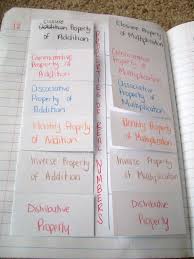 Closure
Property
of Addition
Closure Property
of Multiplication
Commutative
Property of
Addition
Commutative
Property of
Multiplication
Associative
Property of
Addition
Associative
Property of
Multiplication
Identity Property
of Addition
Identity Property
of Multiplication
Inverse Property
of Addition
Inverse Property
of Multiplication
Distributive
Property
Distributive
Property
NUMBERS